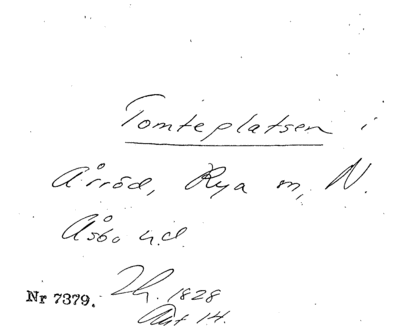 Tomteplatsen i
Årröd, Rya m, N.
Åsbo h.d.
Nr 7379. 1828
Art 14.